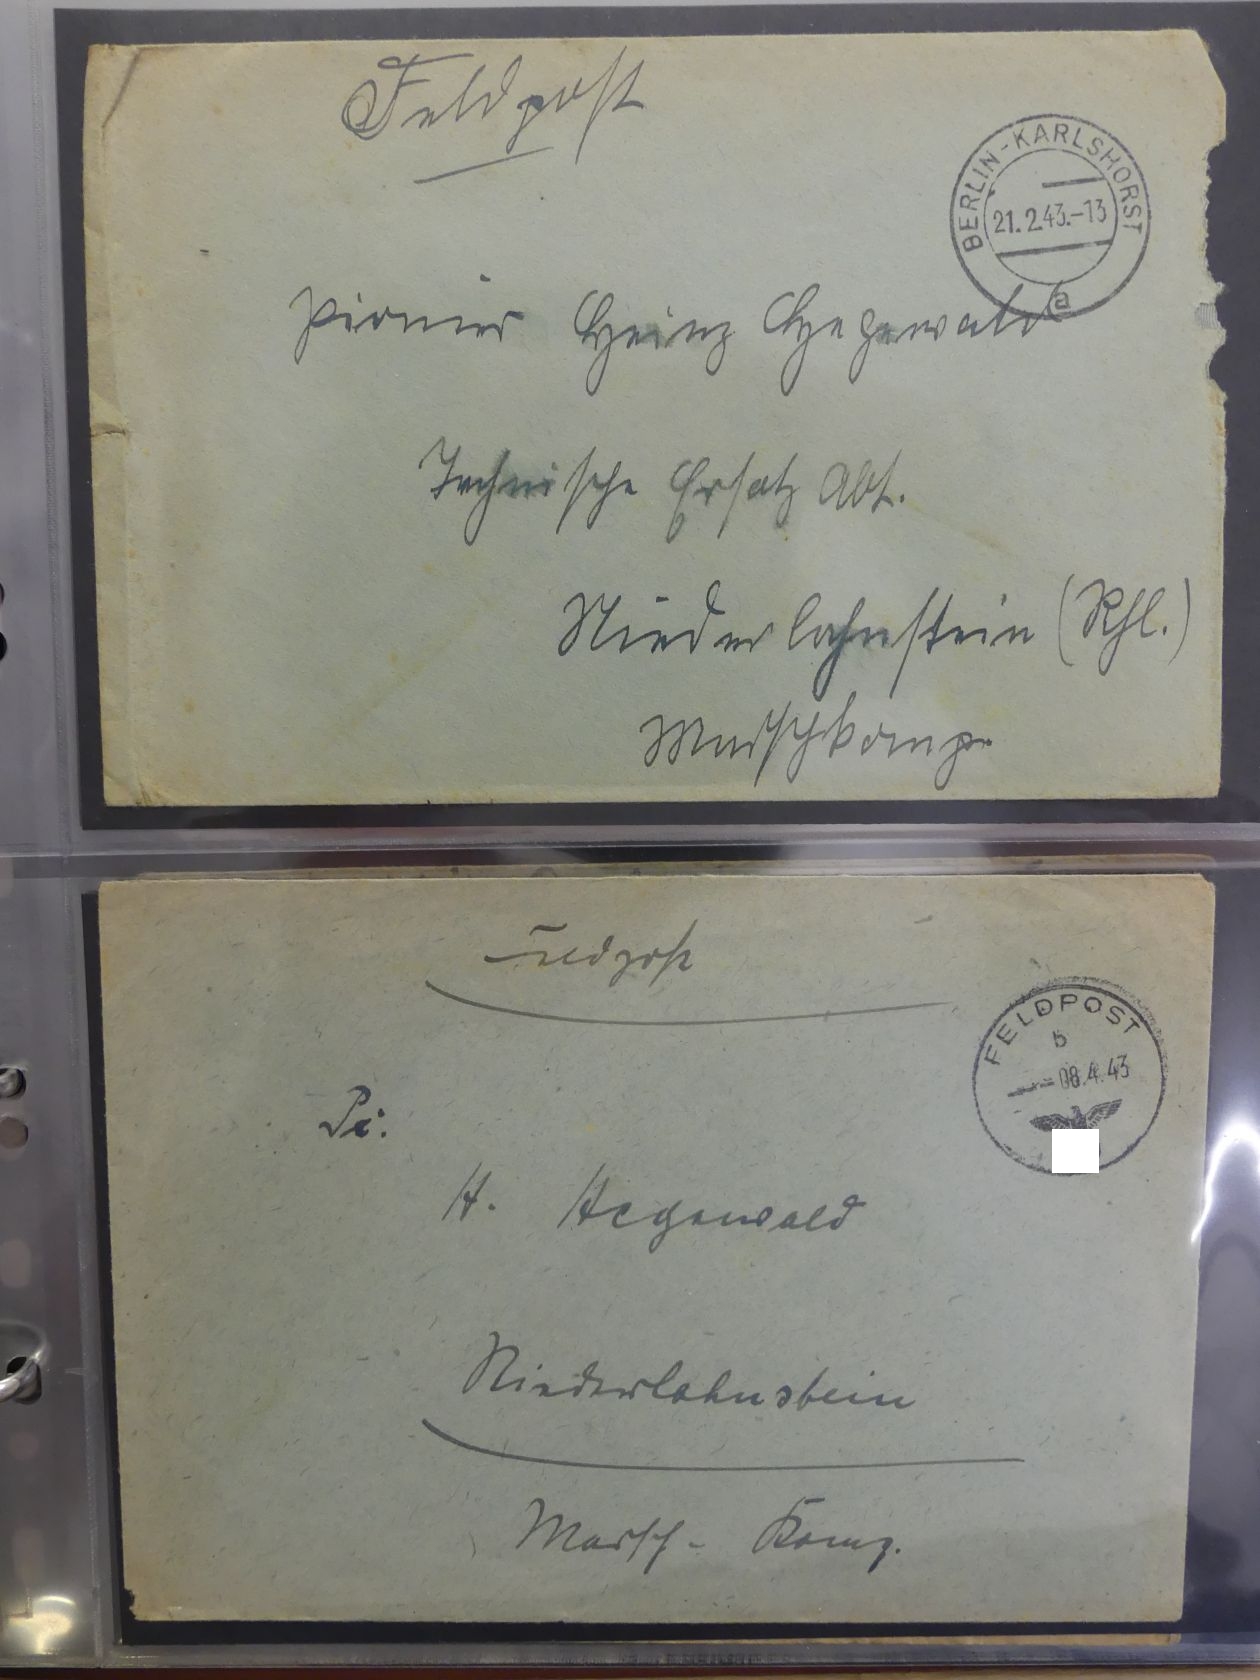 Feldpost
BERLIN-KARLSHORST
21.2.43.-13
a
Pionier Heinz Hegewald
Technische Ersatz Abt.
Niederlahnstein (Rhl.)
Marschkomp.
Feldpost
FELDPOST
b
--08.4.43
Pi.
H. Hegewald
Niederlahnstein
Marsch-Komp.